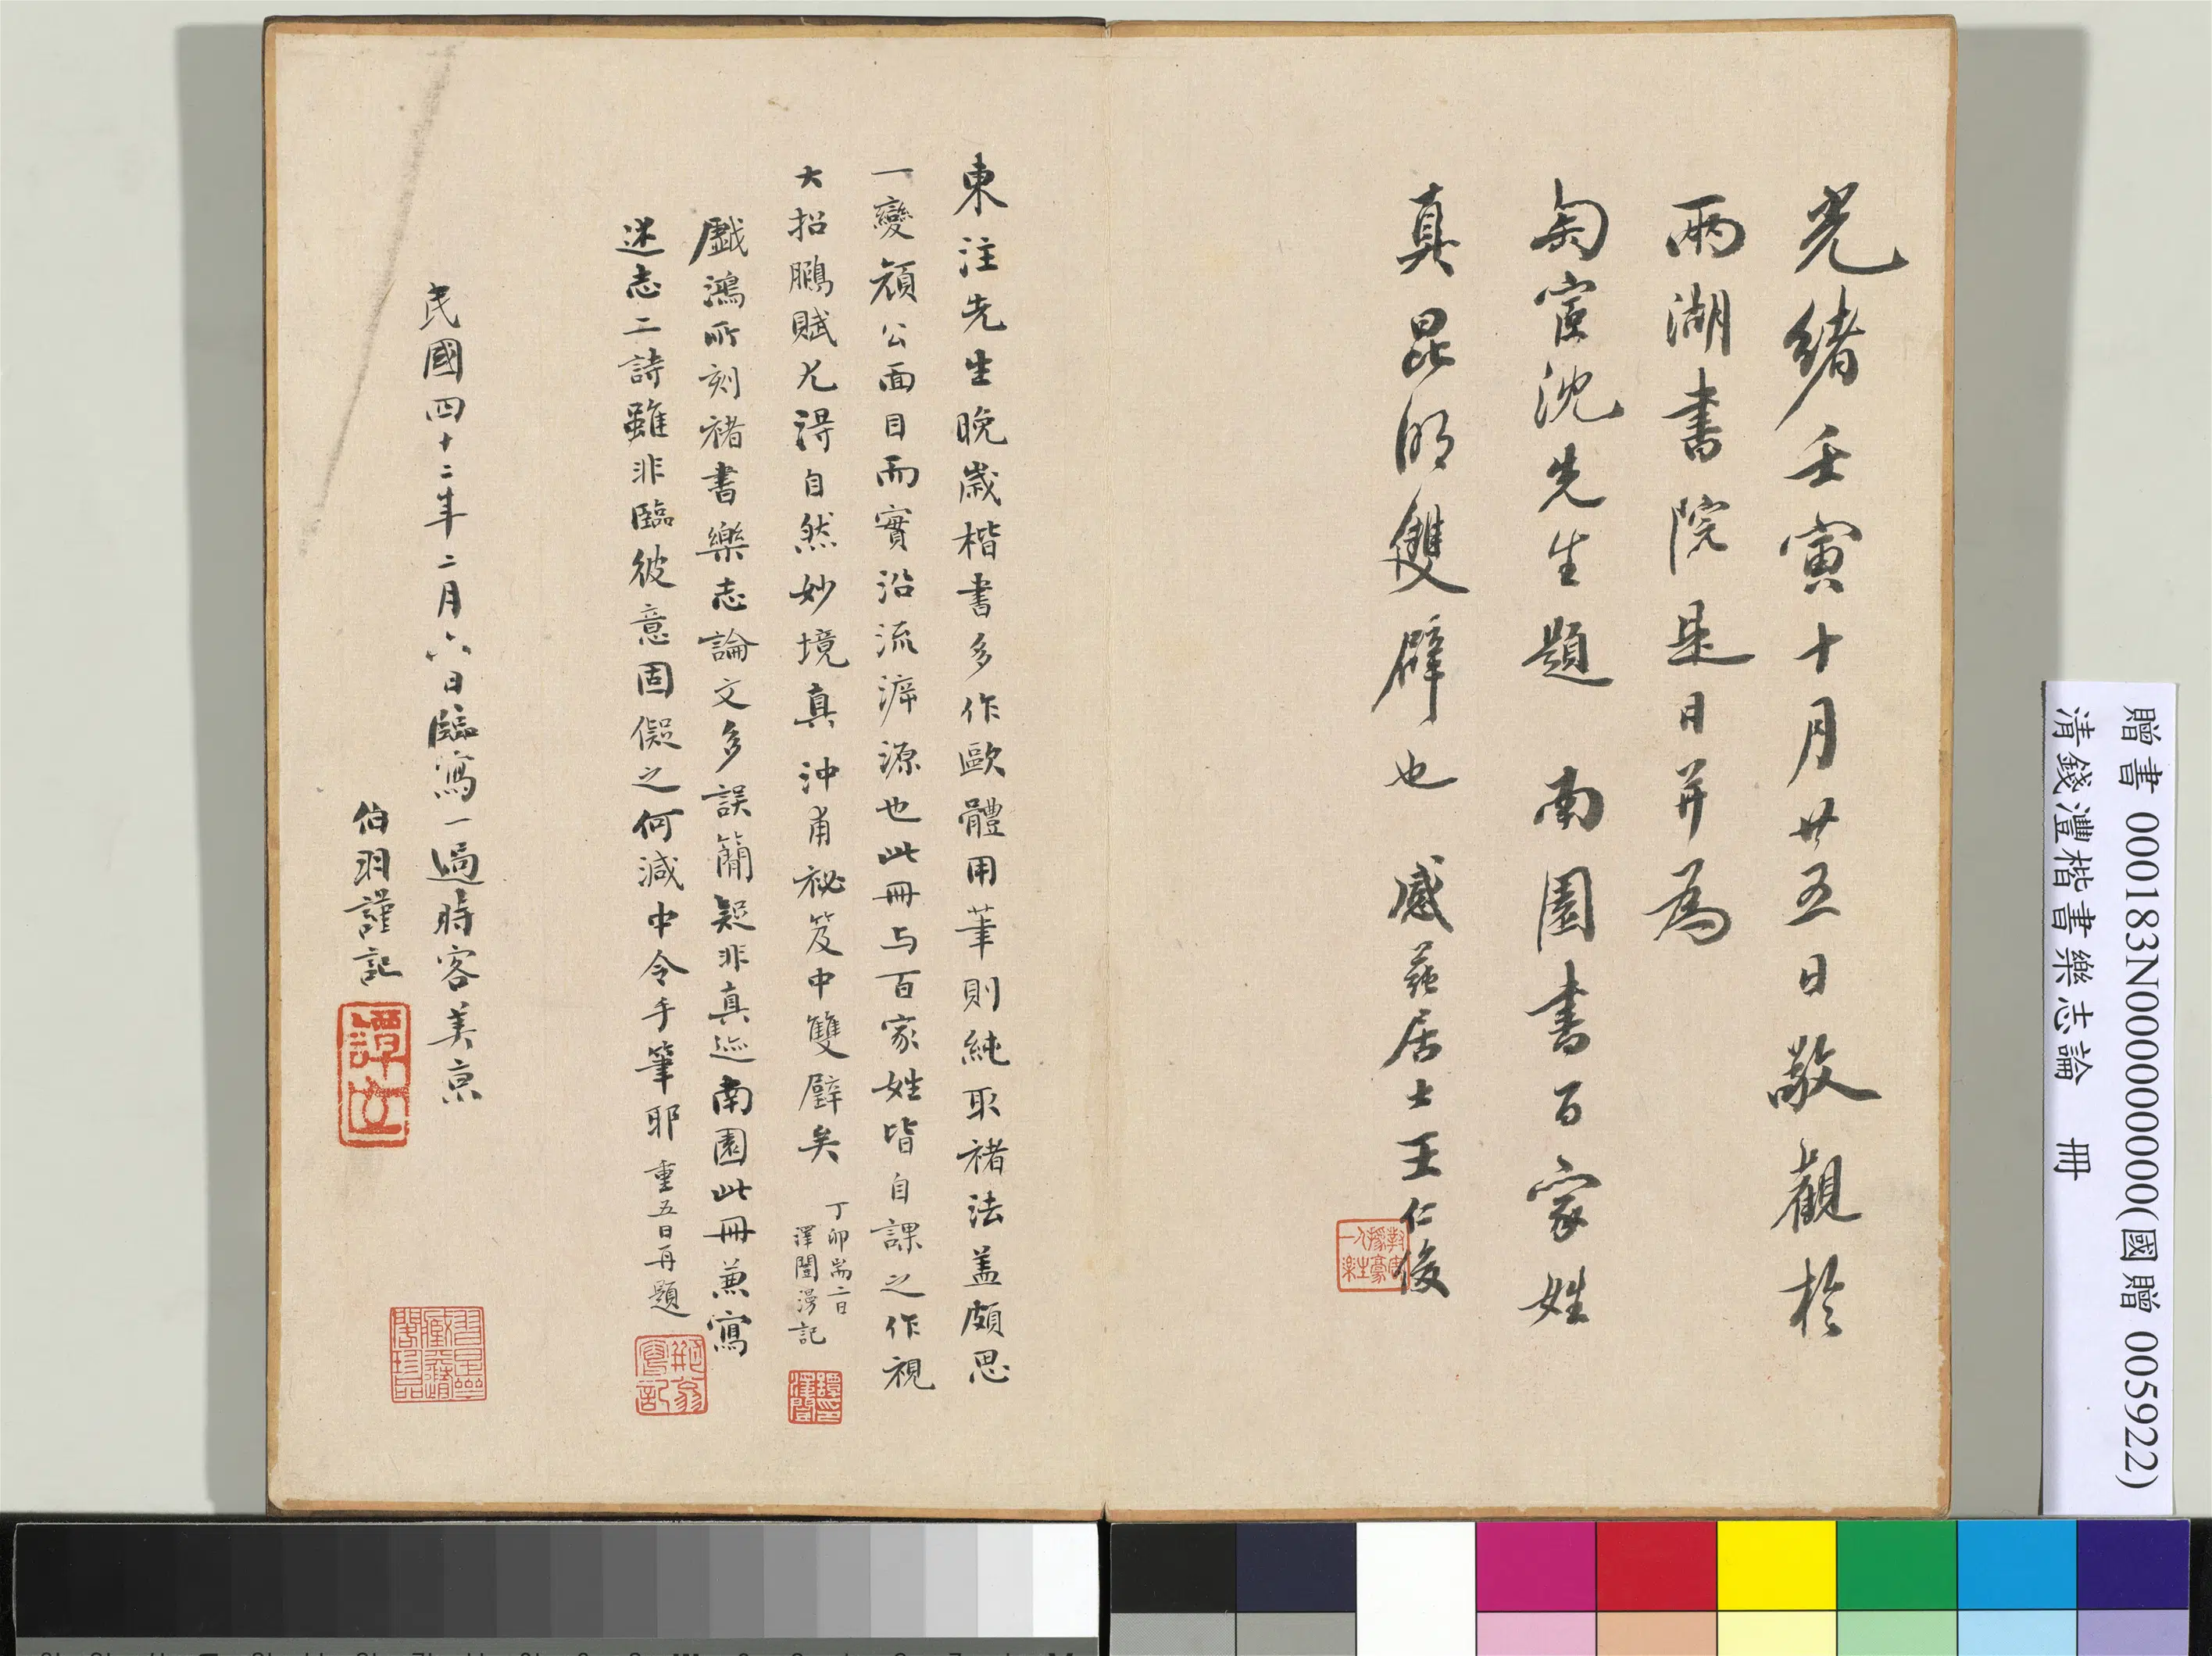 光緒壬寅十月廿五日敬觀於
兩湖書院是日并為
匋宧沈先生題 南園書百家姓
真昆明雙璧也 感蒓居士王仁俊
東注先生晚歲楷書多作歐體用筆則純取褚法蓋頗思
一變顏公面目而實沿流溯源也此冊与百家姓皆自課之作視
大招鵬賦尤得自然妙境真沖甫祕笈中雙璧矣
丁卯耑二日
澤闓漫記
戲鴻所刻褚書樂志論文多誤簡疑非真迹南園此冊兼寫
述志二詩雖非臨彼意固儗之何減中令手筆耶 重五日再題
民國四十二年二月六日臨寫一過時客美京
伯羽謹記
贈書 000183N000000000(國贈 005922)
清錢灃楷書樂志論 冊